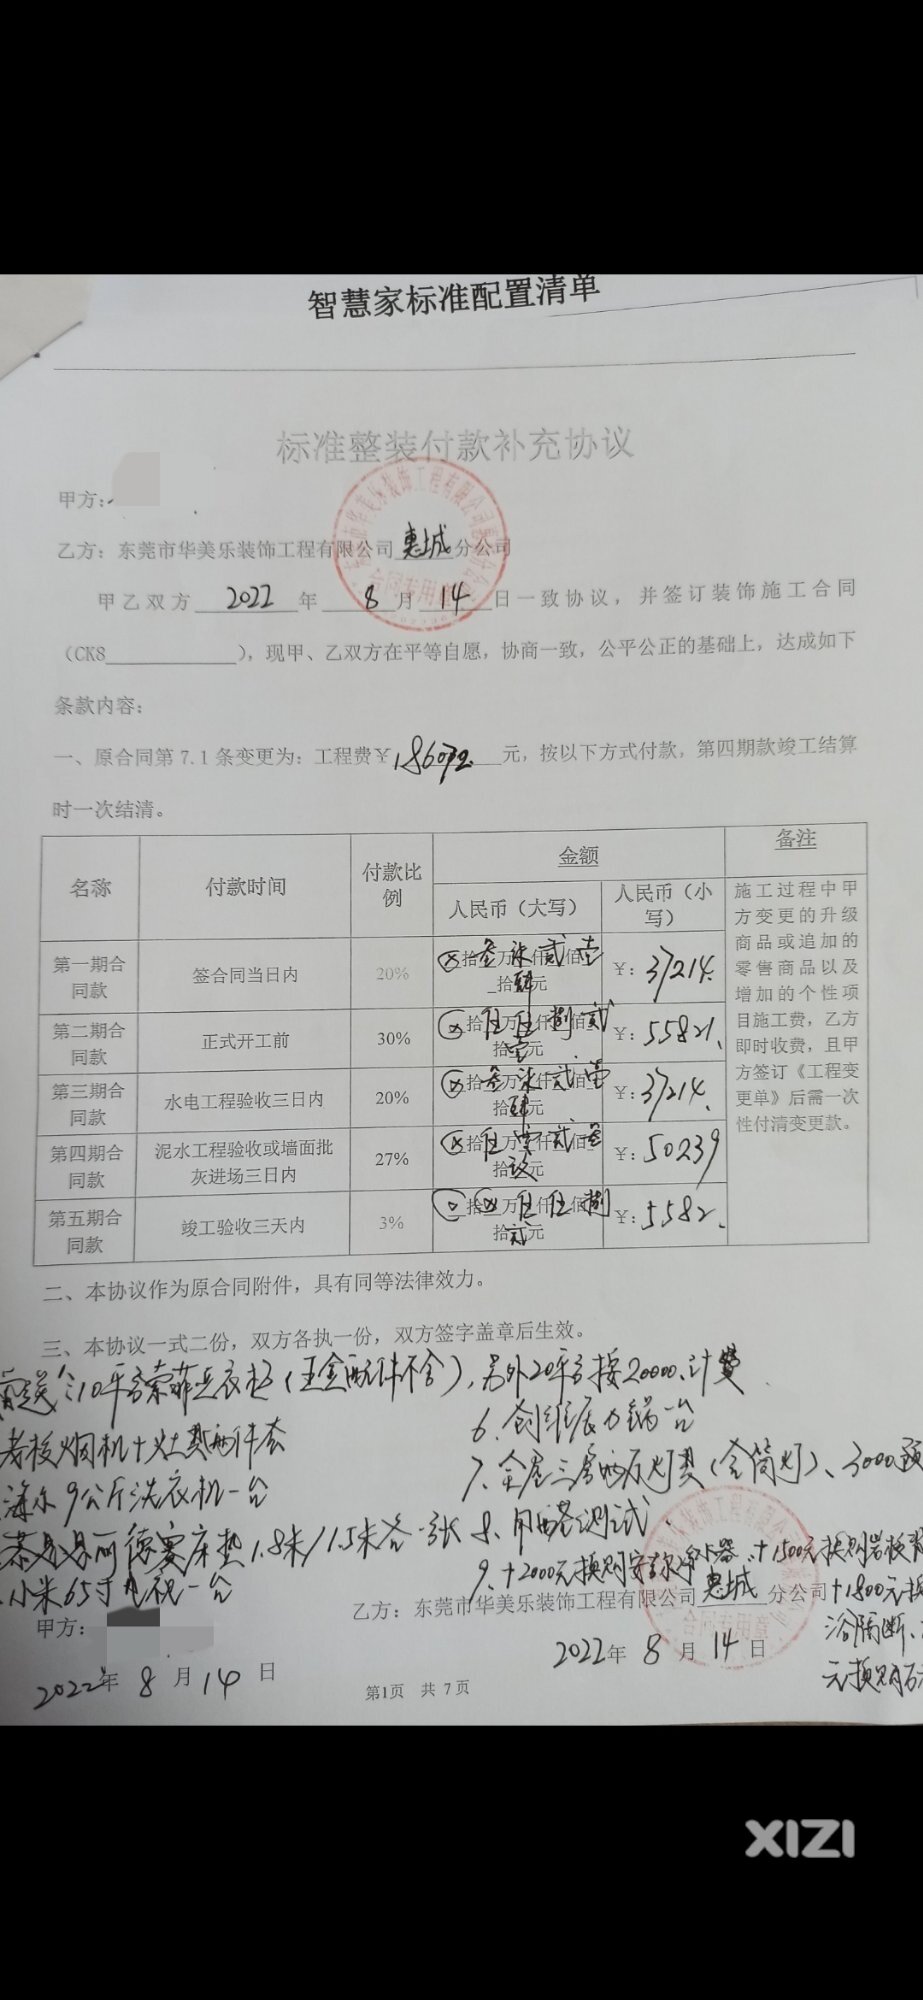 智慧家标准配置清单
标准整装付款补充协议
甲方:
乙方：东莞市华美乐装饰工程有限公司惠城分公司
合同专用章
甲乙双方2022年8月14日一致协议，并签订装饰施工合同
（CK8），现甲、乙双方在平等自愿，协商一致，公平公正的基础上，达成如下
条款内容：
一、原合同第7.1条变更为：工程费￥186072元，按以下方式付款，第四期款竣工结算
时一次结清。
名称 付款时间 付款比例 金额 备注
人民币（大写） 人民币（小写）
第一期合同款 签合同当日内 20% 拾叁万柒仟贰佰壹拾肆元 ￥：37214.
第二期合同款 正式开工前 30% 拾伍万伍仟捌佰贰拾壹元 ￥：55821.
第三期合同款 水电工程验收三日内 20% 拾叁万柒仟贰佰壹拾肆元 ￥：37214.
第四期合同款 泥水工程验收或墙面批灰进场三日内 27% ￥：50239
第五期合同款 竣工验收三天内 3% ￥：5582.
施工过程中甲
方变更的升级
商品或追加的
零售商品以及
增加的个性项
目施工费，乙方
即时收费，且甲
方签订《工程变
更单》后需一次
性付清变更款。
二、本协议作为原合同附件，具有同等法律效力。
三、本协议一式二份，双方各执一份，双方签字盖章后生效。
送：10平方索菲亚衣柜（五金配件不含），另外20平方按20000.计费
老板烟机+灶具两件套
6.创维压力锅一台
7.全屋三房两厅灯具（含筒灯）、3000预
海尔9公斤洗衣机一台
床垫1.8米/1.5米各一张
8.甲醛测试
小米65寸电视一台
9.+2000元换购净水器.+1500元换购岩板
+1800元换
浴隔断、
元换购
甲方：
乙方：东莞市华美乐装饰工程有限公司惠城分公司
合同专用章
2022年8月14日
2022年8月14日
第1页 共7页
XIZI